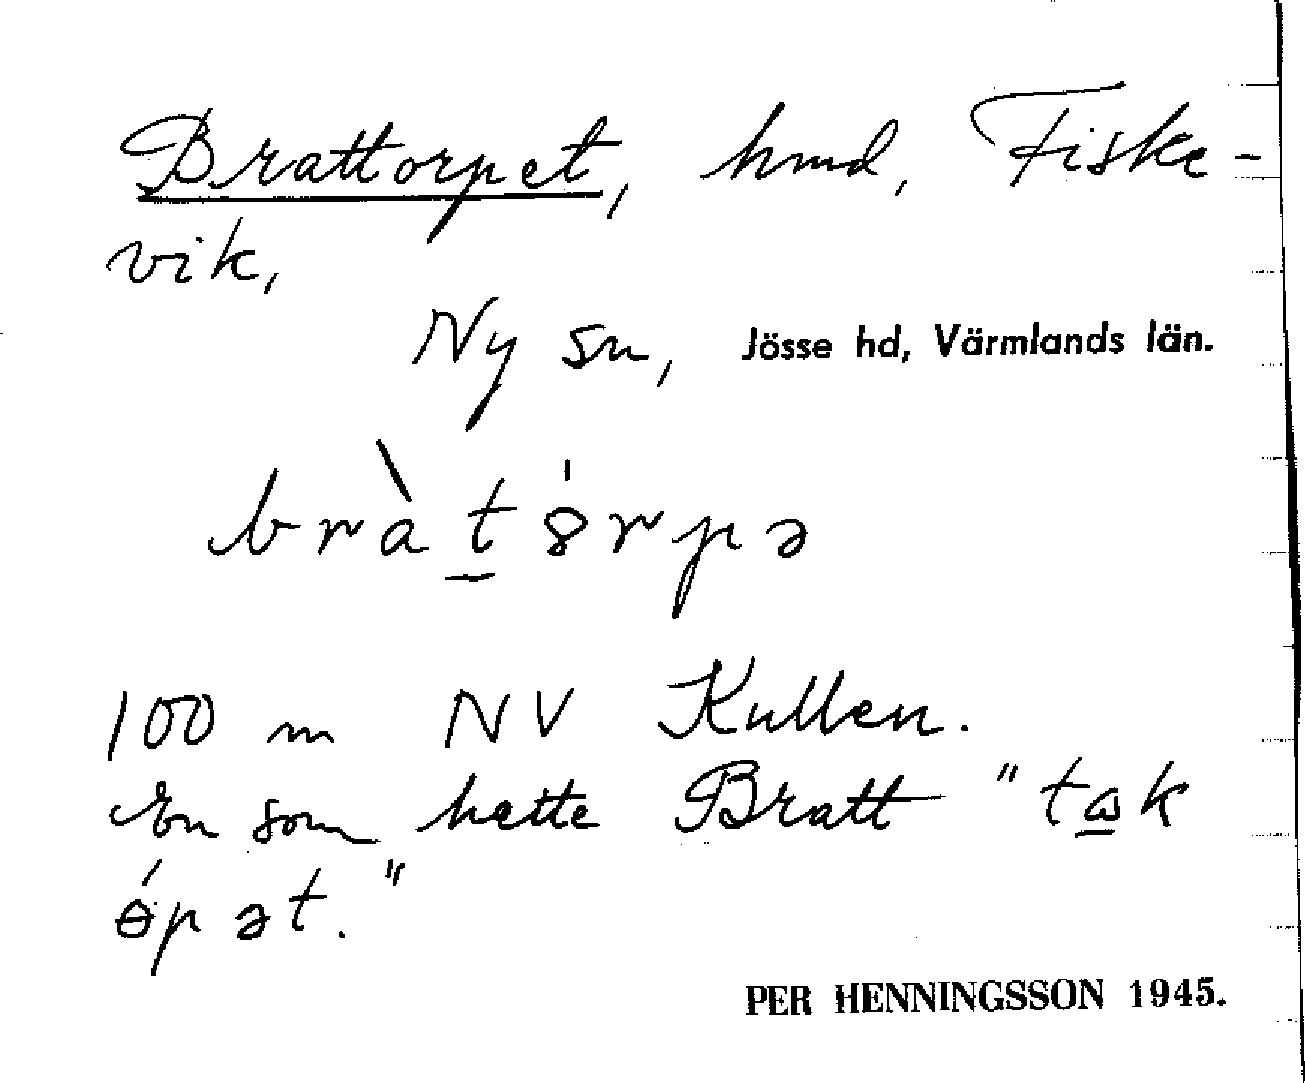 Brattorpet, hmd, Fiske-
vik,
Ny sn, Jösse hd, Värmlands län.
bràt̲8́rpə
100 m NV Kullen.
En som hette Bratt "ta̲k
ɵ́pət."
PER HENNINGSSON 1945.